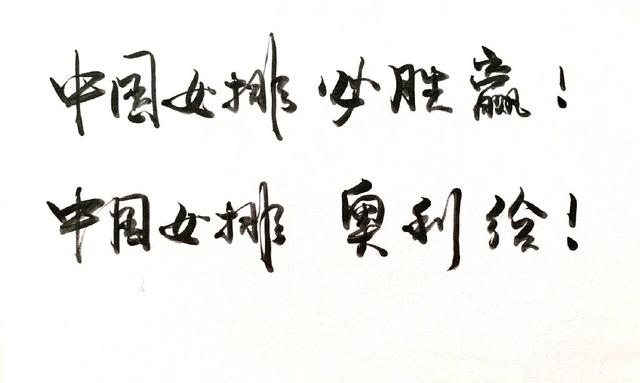 中国女排必胜赢！
中国女排 奥利给！